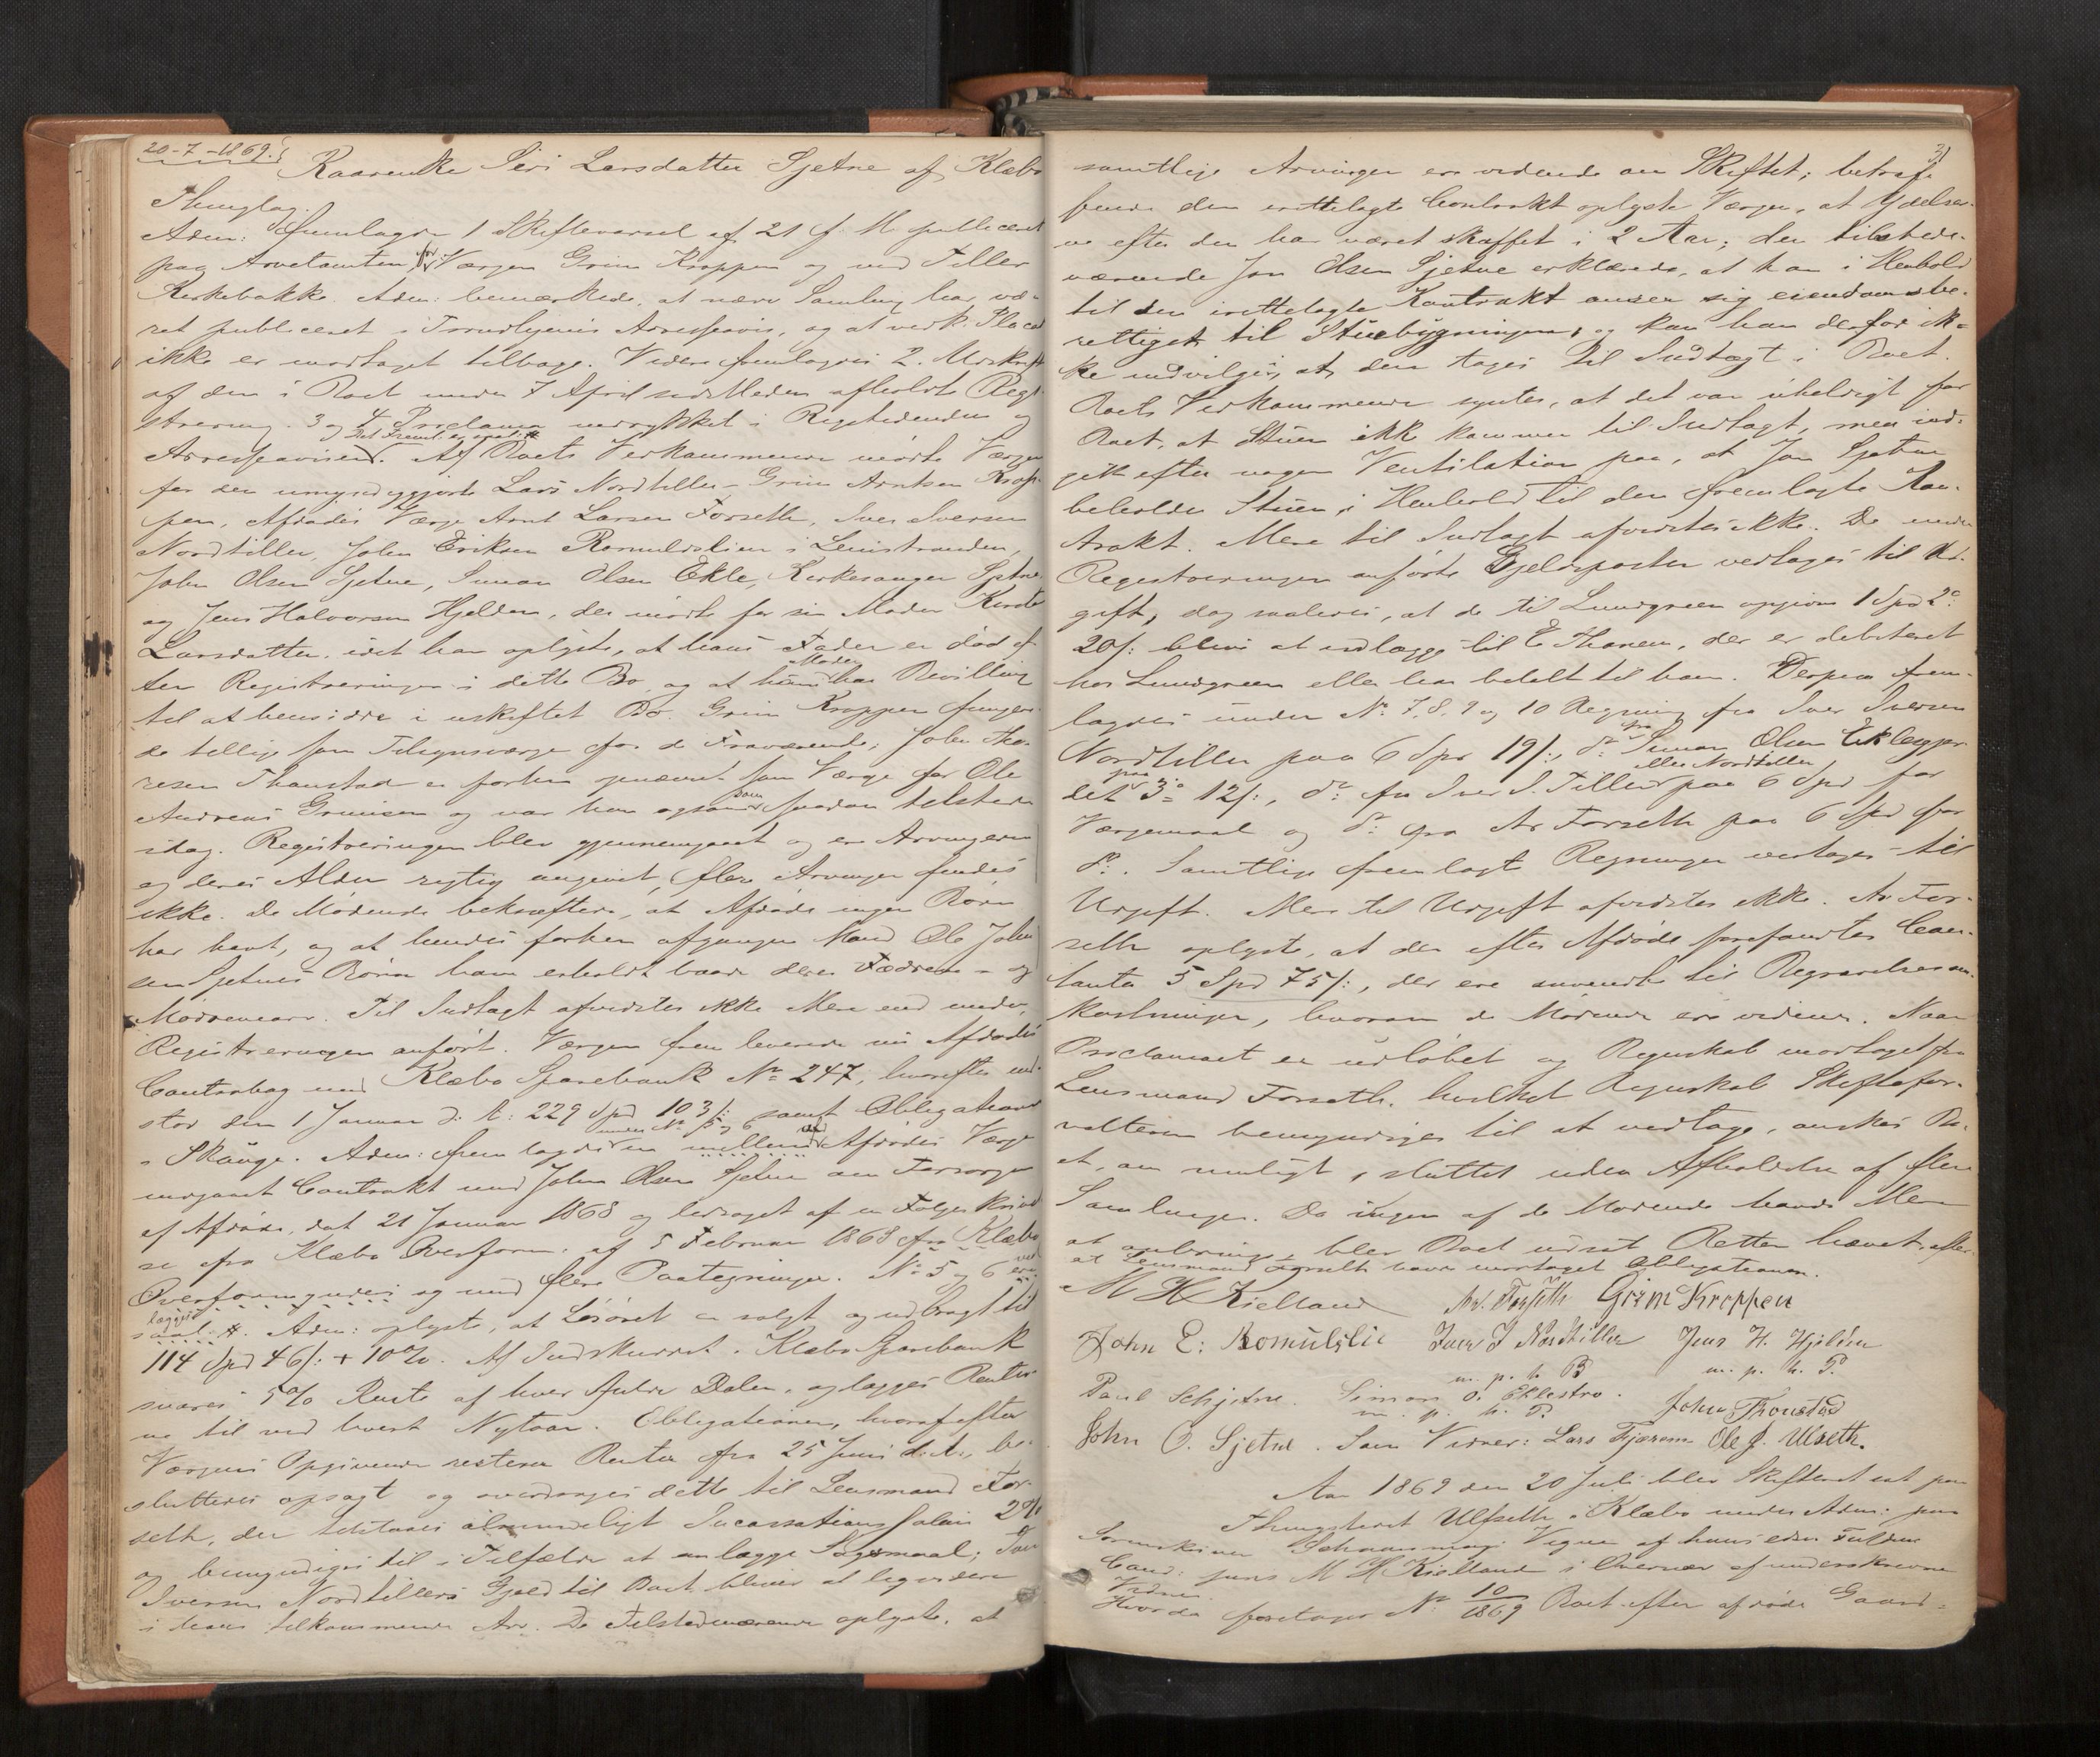 20-7-1869.
Kaarenke Seri Larsdatter Sjetne af Klæbo
Thinglag.
Adm: fremlagde 1 Skiftevarsel af 21 f. M. publiceret
paa Arvetomten, for Værgen Grim Kroppen og ved Tiller
Kirkebakke. Adm: bemærkede, at nærv. Samling har væ-
ret publiceret i Trondhjems Adresseavis, og at vedk. Placat
ikke er modtaget tilbage. Videre fremlagdes 2. Udskrift
af den i Boet under 7 April sidstleden afholdte Regi-
strering. 3 og 4 Proclama indrykket i Rigstidenden og
Adresseavisen. Det Freml. er
Af Boets Vedkommende mødte Værgen
for den umyndiggjorte Lars Nordtiller - Grim Arntsen Krop-
pen, Afdødes Værge Arnt Larsen Forseth, Iver Iversen
Nordtiller, John Eriksen Romulslien i Leinstranden,
John Olsen Sjetne, Simon Olsen Ekle, Kirkesanger Sjetne
og Jens Halvorsen Hjelden, der mødte for sin Moder Kirsti
Larsdatter, idet han oplyste, at hans Fader er død ef-
ter Registreringen i dette Bo, og at hans Moder har Bevilling
til at hensidde i uskiftet Bo. Grim Kroppen funger-
de tillige som Tilsynsværge for de Fraværende; John Tho-
resen Thonstad er forhen opnævnt som Værge for Ole
Andreas Grimsen og var han ogsaa som saadan tilstede
idag. Registreringen blev gjennemgaaet og er Arvingerne
og deres Alder rigtig angivet, flere Arvinger findes
ikke. De Mødende bekræftede, at Afdøde ingen Børn
har havt, og at hendes forhen afgangne Mand Ole John-
sen Sjetnes Børn have erholdt baade deres Fædrene- og
Mødrenearv. Til Indtægt afvidstes ikke Mere end under
Registreringen anført. Værgen fremleverede nu Afdødes
Contrabog med Klæbo Sparebank No 247, hvorefter ind-
stod den 1 Januar d. A: 229 Spd 103 s: samt Obligationen
i Skauge. Adm: fremlagde under No 5 og 6 en mellem Afdødes Værge
indgaaet Contrakt med John Olsen Sjetne om Forsorgen
af Afdøde, dat. 21 Januar 1868 og ledsaget af en Følgeskrivel-
se fra Klæbo Overform. af 5 Februar 1868 fra Klæbo
Overformynderi og med flere Paategninger. No 5 og 6
lagdes
Adm: oplyste, at Løsøret er solgt og udbragt til
114 Spd 46 s: + 10%. Af Indskuddet i Klæbo Sparebank
svares 5% Rente af hver fulde Daler, og lægges Renter-
ne til ved hvert Nytaar. Obligationen, hvoraf efter
Værgens Opgivende resterer Renter fra 25 Juni d. A., be-
sluttedes opsagt og overdrages dette til Lensmand For-
seth, der tilstaaes almindeligt Incassations Salair 2%
og bemyndiges til i Tilfælde at anlægge Søgsmaal; Iver
Iversen Nordtillers Gjæld til Boet bliver at liqvidere
i hans tilkommende Arv. De Tilstedeværende oplyste, at
3
samtlige Arvinger ere vidende om Skiftet; betræf-
fende den irettelagte Contrakt oplyste Værgen, at Ydelser-
ne efter den har været skaffet i 2 Aar; den tilstede-
værende Jon Olsen Sjetne erklærede, at han i Henhold
til den irettelagte Kontrakt anser sig eiendomsbe-
rettiget til Stuebygningen, og kan han derfor ik-
ke indvilge i, at den tages til Indtægt i Boet.
Boets Vedkommende syntes, at det var uheldigt for
Boet, at Stuen ikke kommer til Indtægt, men ind-
gik efter nogen Ventilation paa, at Jon Sjetne
beholder Stuen i Henhold til den fremlagte Kon-
trakt. Mere til Indtægt afvidstes ikke. De under
Registreringen anførte Gjeldsposter vedtages til Ud-
gift, dog saaledes, at de til Lundgreen opgivne 1 Spd 2 o:
20 s: blive at udlægge til E. Thanem, der er debiteret
hos Lundgreen eller har betalt til ham. Derpaa frem-
lagdes under No 7, 8, 9 og 10 Regning fra Iver Iversen
Nordtiller paa 6 Spd 19 s:, do: fra Simon Olsen Ekle
paa 3 o: 12 s:, do: fra Iver I. Tiller eller Nordtiller paa 6 Spd for
Værgemaal og do: fra Ar. Forseth paa 6 Spd for
do. Samtlige fremlagte Regninger vedtages til
Udgift. Mere til Udgift afvidstes ikke. Ar. For-
seth oplyste, at der efter Afdøde forefandtes Con-
tanter 5 Spd 75 s:, der ere anvendte til Begravelsesom-
kostninger, hvorom de Mødende ere vidende. Naar
Proclamaet er udløbet og Regnskab modtaget fra
Lensmand Forseth, hvilket Regnskab Skiftefor-
valteren bemyndiges til at vedtage, ønskes Bo-
et, om muligt, sluttet uden Afholdelse af flere
Samlinger. Da ingen af de Mødende havde Mere
at anbringe, blev Boet udsat. Retten hævet, efter
at Lensmand Forseth havde modtaget Obligationen.
M H Kielland Ar. Forseth Grim Kroppen
John E: Romulslie Iver I Nordtiller Jens H. Hjelden
m. p. h. P. m. p. h. P.
Paul Schjetne. Simon O. Eklestro.
m. p. h. P. John Thonstad
John O. Sjetne. Som Vidner: Lars Fjærem Ole J. Ulseth.
Aar 1869 den 20 Juli blev Skifteret sat paa
Thingstedet Ulfseth i Klæbo under Adm: paa
Sorenskriver Schnormanns Vegne af hans edsv. Fuldm.
Cand: juris M H Kielland i Overvær af underskrevne
Vidner.
Hvorda foretoges No 10/1869 Boet efter afdøde Gaard-